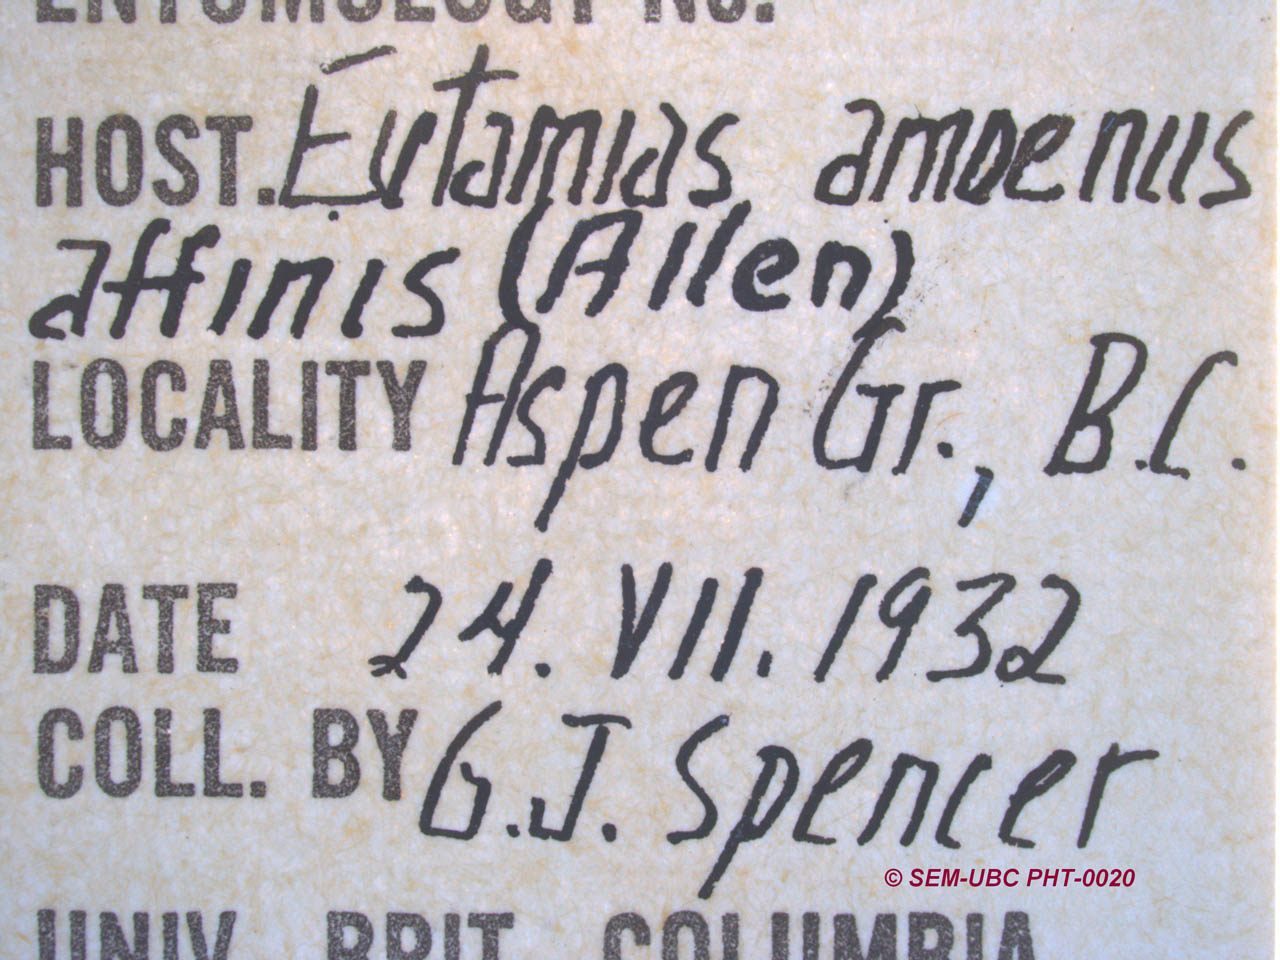 ENTOMOLOGY NO.
HOST. Eutamias amoenus
affinis (Allen)
LOCALITY Aspen Gr., B.C.
DATE 24. VII. 1932
COLL. BY G.J. Spencer
© SEM-UBC PHT-0020
UNIV. BRIT. COLUMBIA